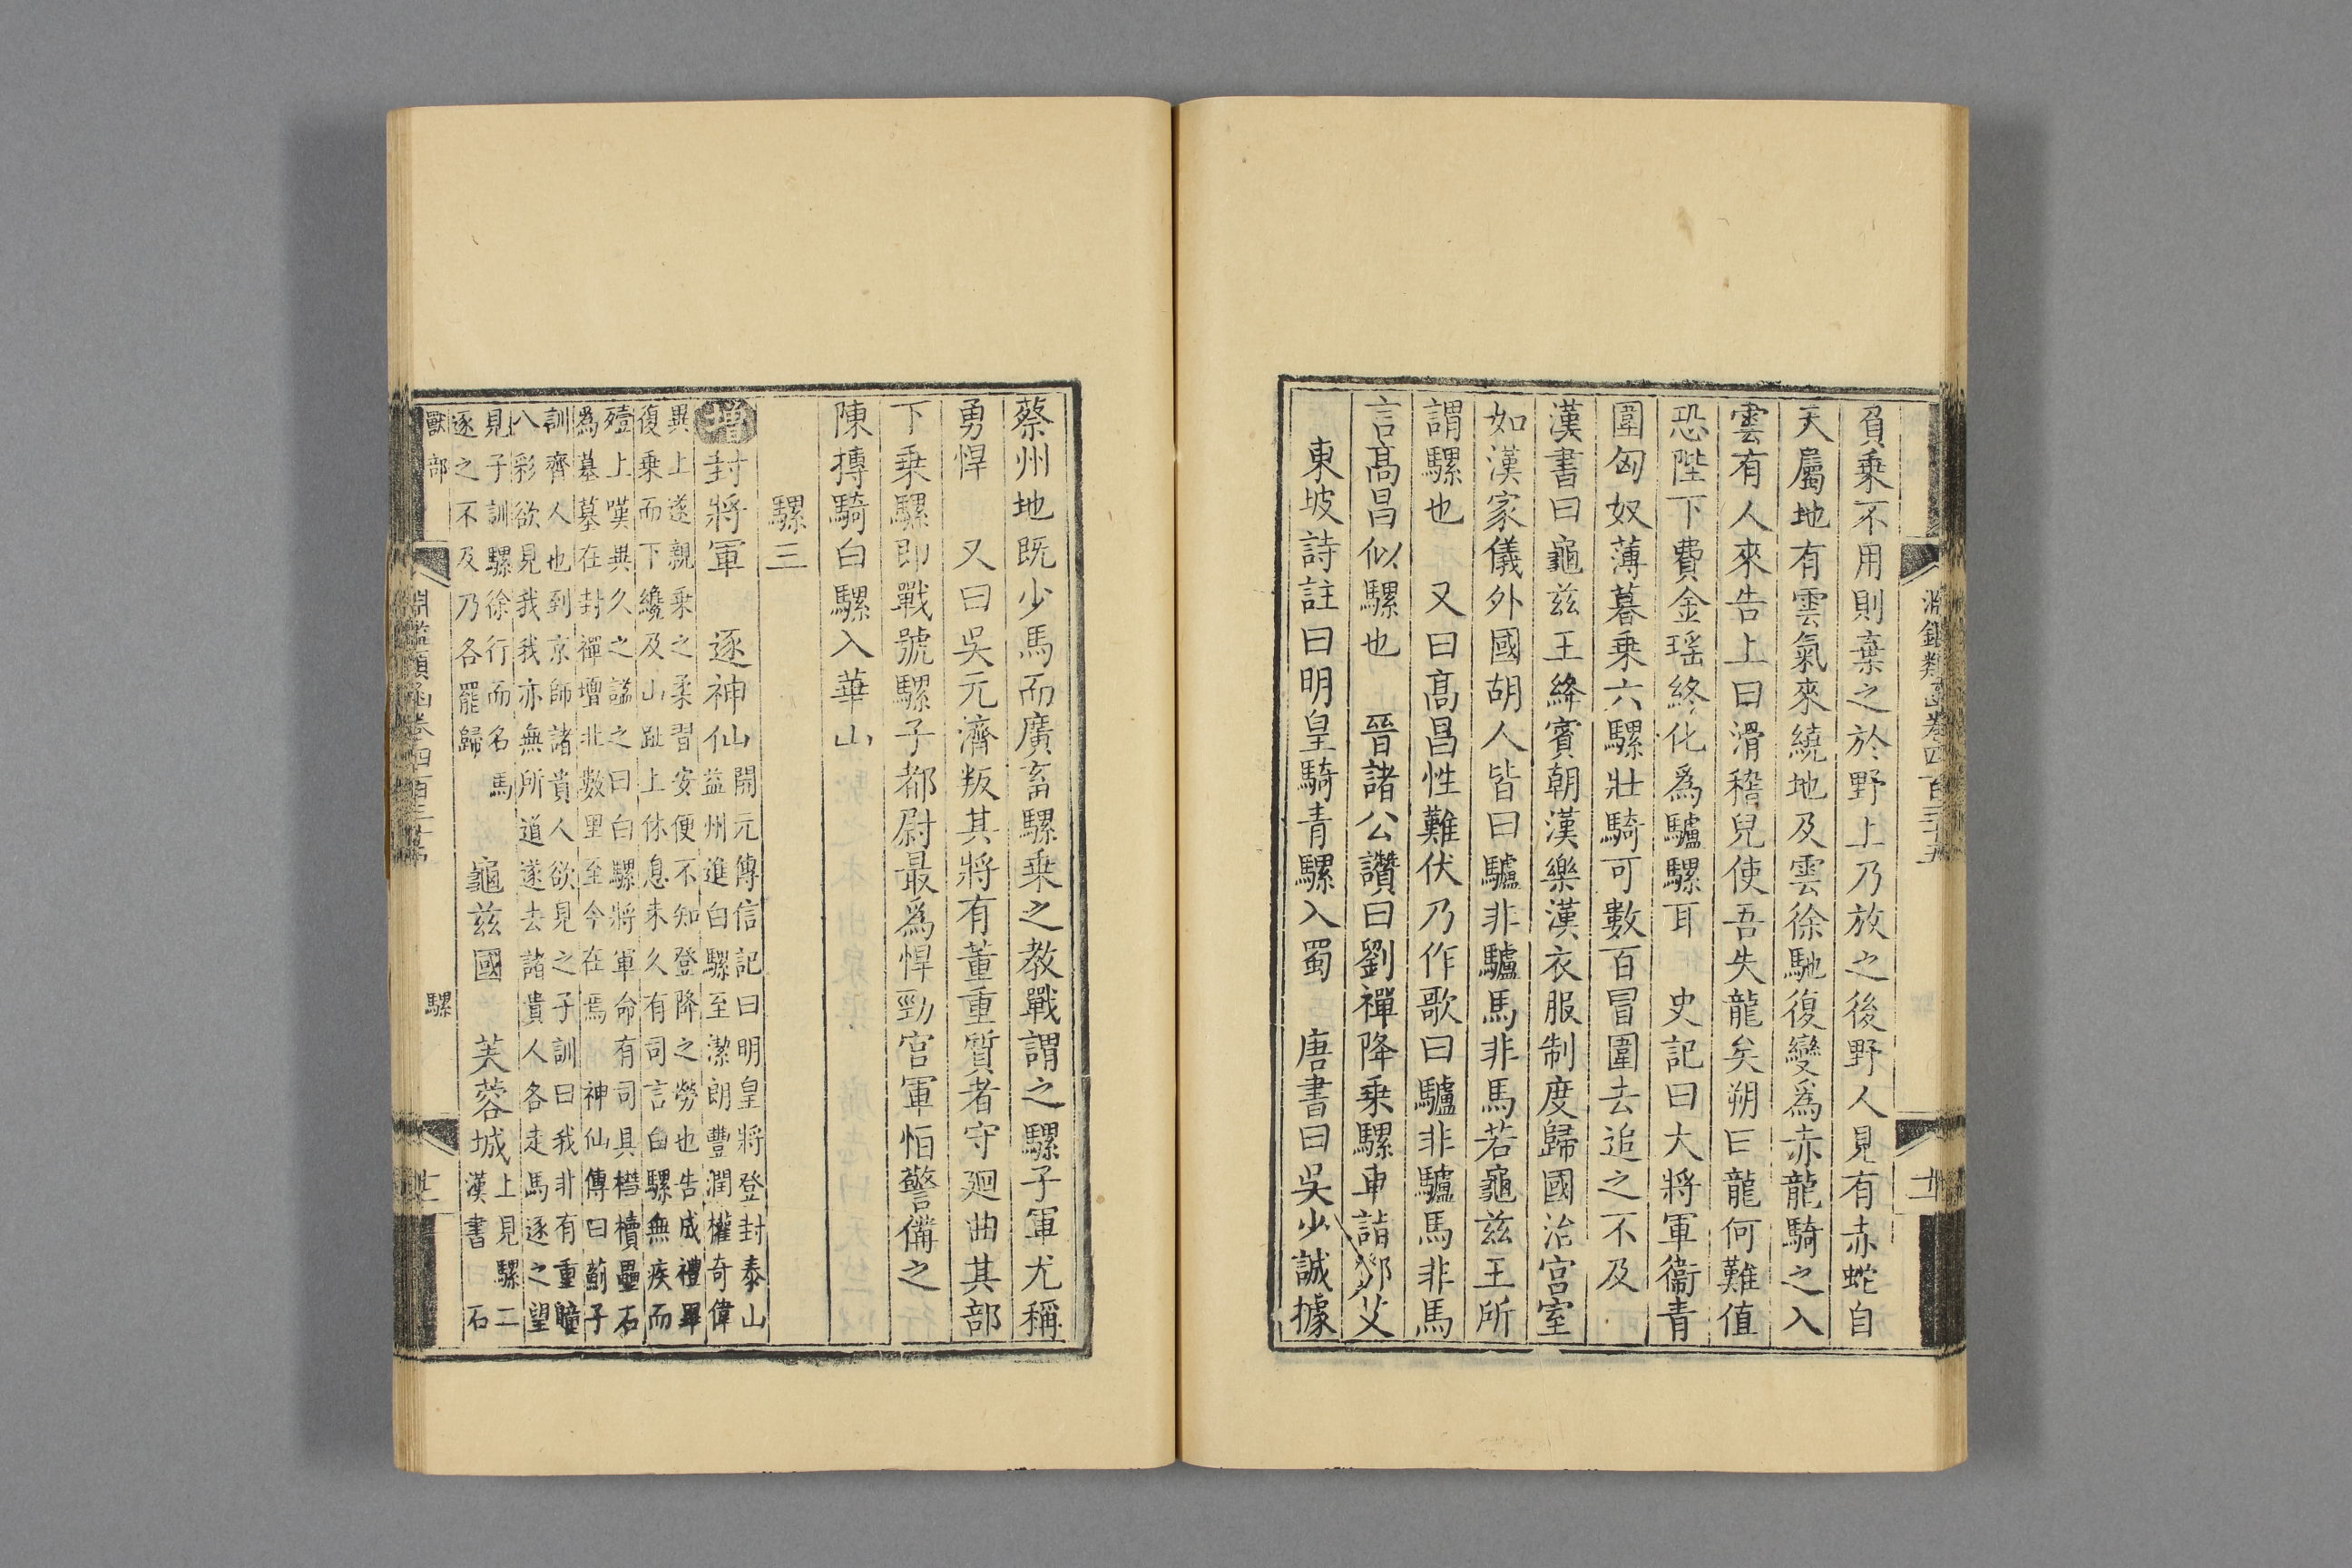 淵鑑類函卷四百三十五
負乗不用則棄之於野上乃放之後野人見有赤蛇自
天屬地有雲氣來繞地及雲徐馳復變爲赤龍騎之入
雲有人來告上曰滑稽兒使吾失龍矣朔曰龍何難值
恐陛下費金瑶終化爲驢騾耳　史記曰大將軍衞青
圍匈奴薄暮乗六騾壯騎可數百冒圍去追之不及
漢書曰龜兹王絳賓朝漢樂漢衣服制度歸國治宫室
如漢家儀外國胡人皆曰驢非驢馬非馬若龜兹王所
謂騾也　又曰髙昌性難伏乃作歌曰驢非驢馬非馬
言髙昌似騾也　晉諸公讚曰劉禪降乗騾車詣鄧艾
東坡詩註曰明皇騎青騾入蜀　唐書曰吳少誠據
蔡州地既少馬而廣畜騾乗之教戰謂之騾子軍尤稱
勇悍　又曰吳元濟叛其將有董重質者守廻曲其部
下乗騾即戰號騾子都尉最爲悍勁官軍怕警備之
陳摶騎白騾入華山
騾三
增封將軍　逐神仙
開元傳信記曰明皇將登封泰山
益州進白騾至潔朗豐潤權奇偉
異上遂親乗之柔習安便不知登降之勞也告成禮畢
復乗而下纔及山趾上休息未久有司言白騾無疾而
殪上嘆異久之諡之曰白騾將軍命有司具櫘櫝壘石
為墓墓在封禪壇北數里至今在焉　神仙傳曰薊子
訓齊人也到京師諸貴人欲見之子訓曰我非有重瞳
八彩欲見我我亦無所道遂去諸貴人各走馬逐之望
見子訓騾徐行而名馬
逐之不及乃各罷歸
龜兹國　芙蓉城
上見騾二
漢書　石
獸部　騾